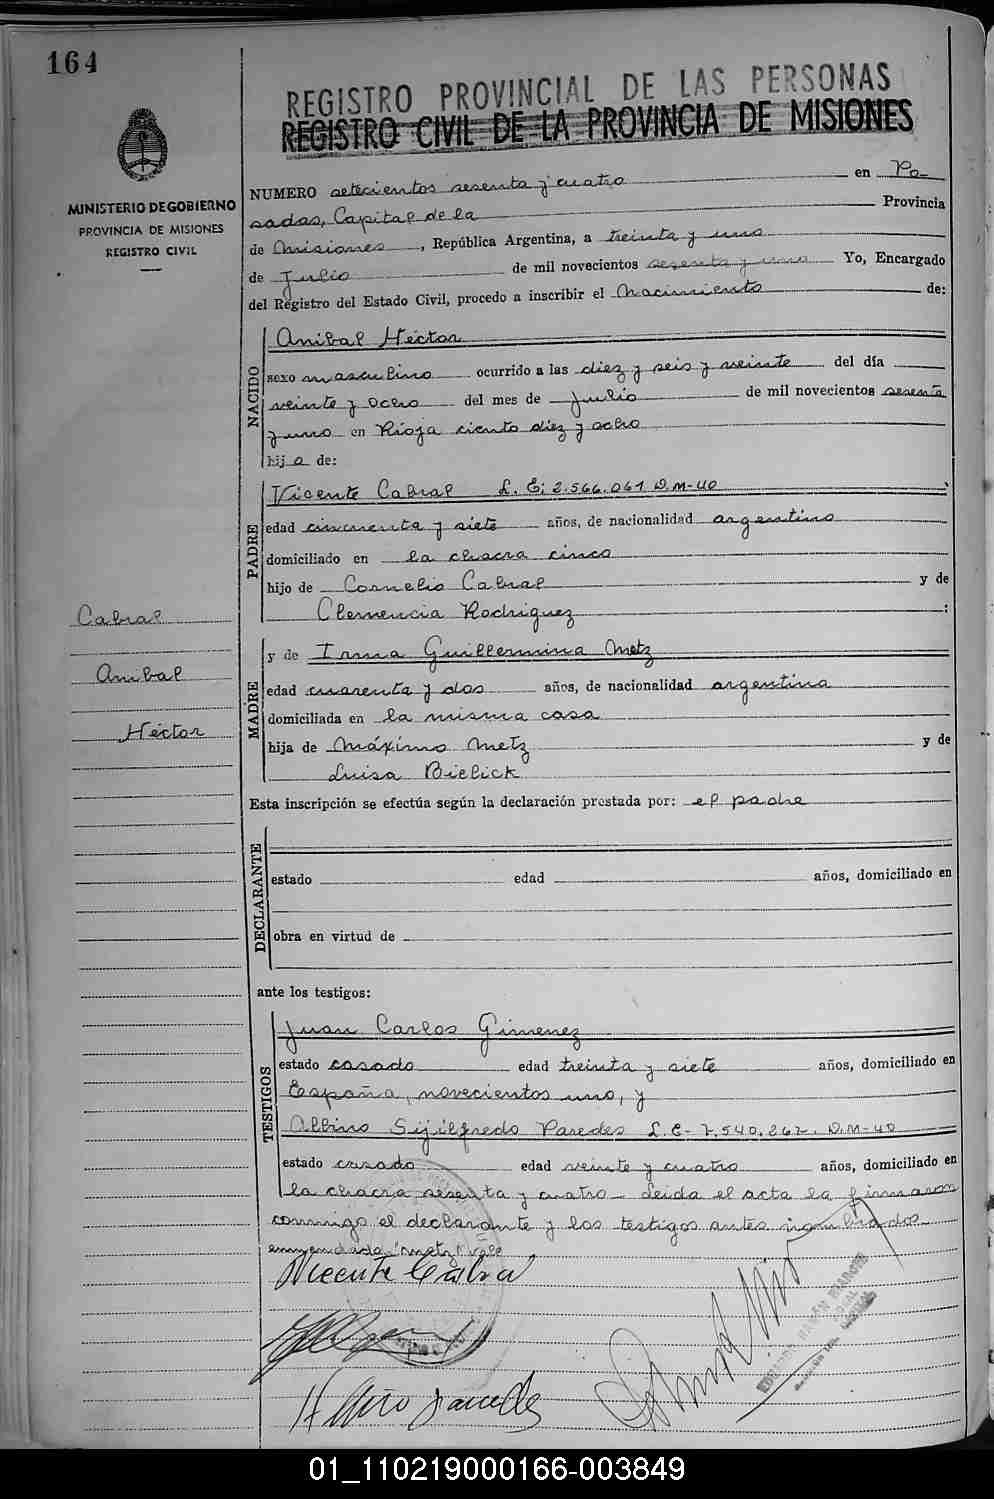 164
MINISTERIO DE GOBIERNO
PROVINCIA DE MISIONES
REGISTRO CIVIL
REGISTRO PROVINCIAL DE LAS PERSONAS
REGISTRO CIVIL DE LA PROVINCIA DE MISIONES
NUMERO setecientos sesenta y cuatro en Po-
sadas, Capital de la Provincia
de Misiones, República Argentina, a treinta y uno
de Julio de mil novecientos sesenta y uno Yo, Encargado
del Registro del Estado Civil, procedo a inscribir el Nacimiento de:
NACIDO
Anibal Héctor
sexo masculino ocurrido a las diez y seis y veinte del día
veinte y ocho del mes de Julio de mil novecientos sesenta
y uno en Rioja ciento diez y ocho
hijo de:
PADRE
Vicente Cabral L. E: 2.566.061 D.M-40
edad cincuenta y siete años, de nacionalidad argentino
domiciliado en la chacra cinco
hijo de Cornelio Cabral y de
Clemencia Rodriguez :
Cabral
Anibal
Héctor
MADRE
y de Irma Guillermina Metz
edad cuarenta y dos años, de nacionalidad argentina
domiciliada en la misma casa
hija de Máximo Metz y de
Luisa Bielick
Esta inscripción se efectúa según la declaración prestada por: el padre
DECLARANTE
estado edad años, domiciliado en
obra en virtud de
ante los testigos:
TESTIGOS
Juan Carlos Gimenez
estado casado edad treinta y siete años, domiciliado en
España, novecientos uno, y
Albino Sijilfredo Paredes L.E- 7.540.267. D.M-40
estado casado edad veinte y cuatro años, domiciliado en
la chacra sesenta y cuatro - leida el acta la firmaron
conmigo el declarante y los testigos antes nombrados
enmendado "Metz" vale
Vicente Cabral
01_110219000166-003849